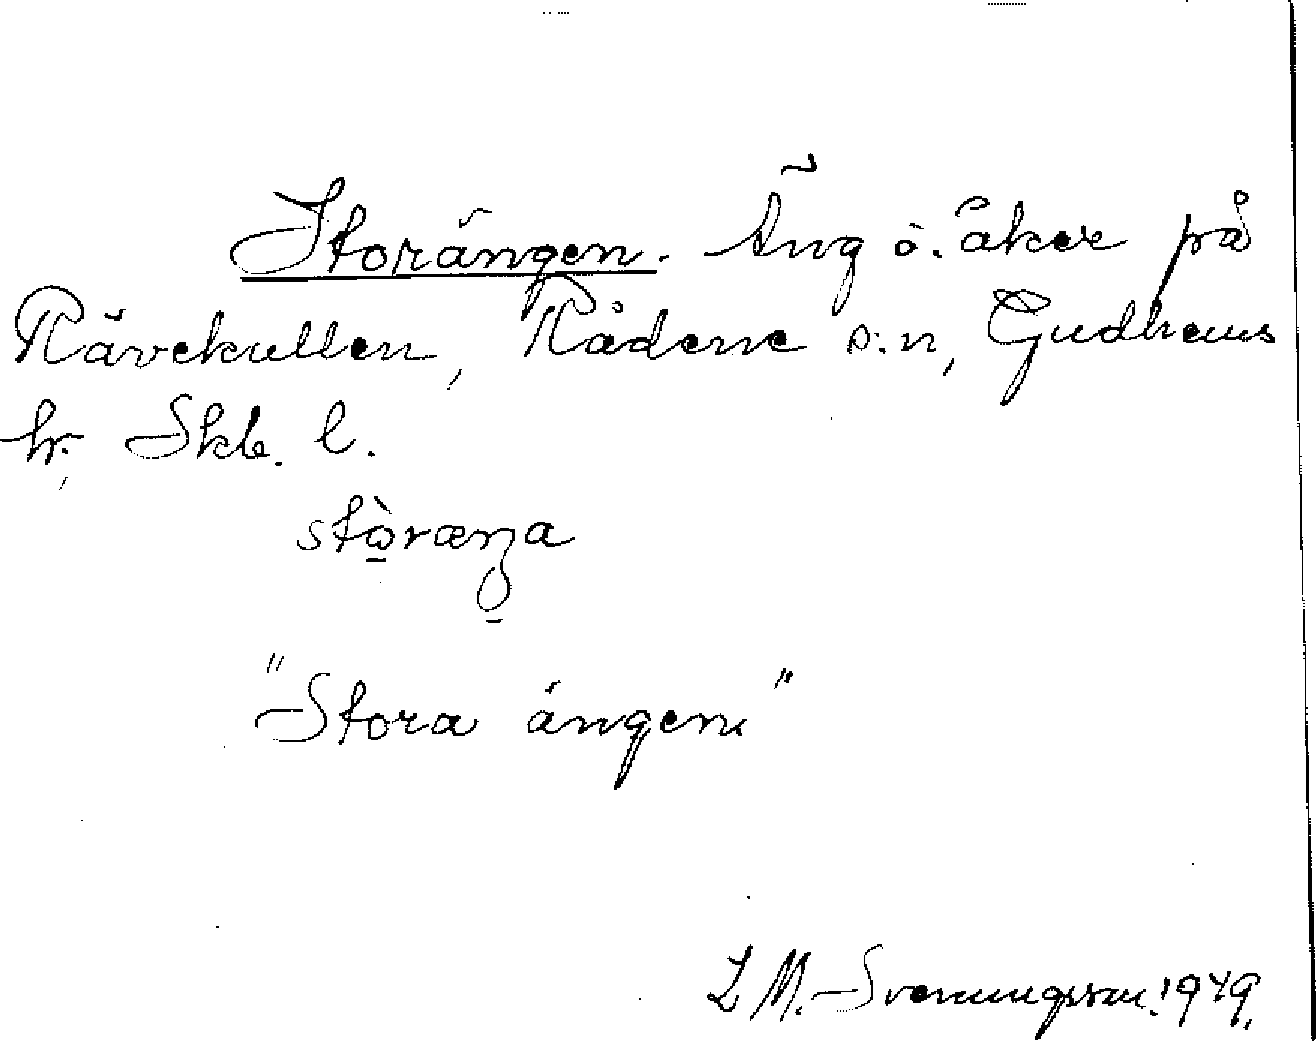 Storängen. Äng o. åker på
Rävekullen, Rådene s:n, Gudhems
hr, Skb. l.
stòræŋa
"Stora ängen."
L M. Svenungsson. 1949.